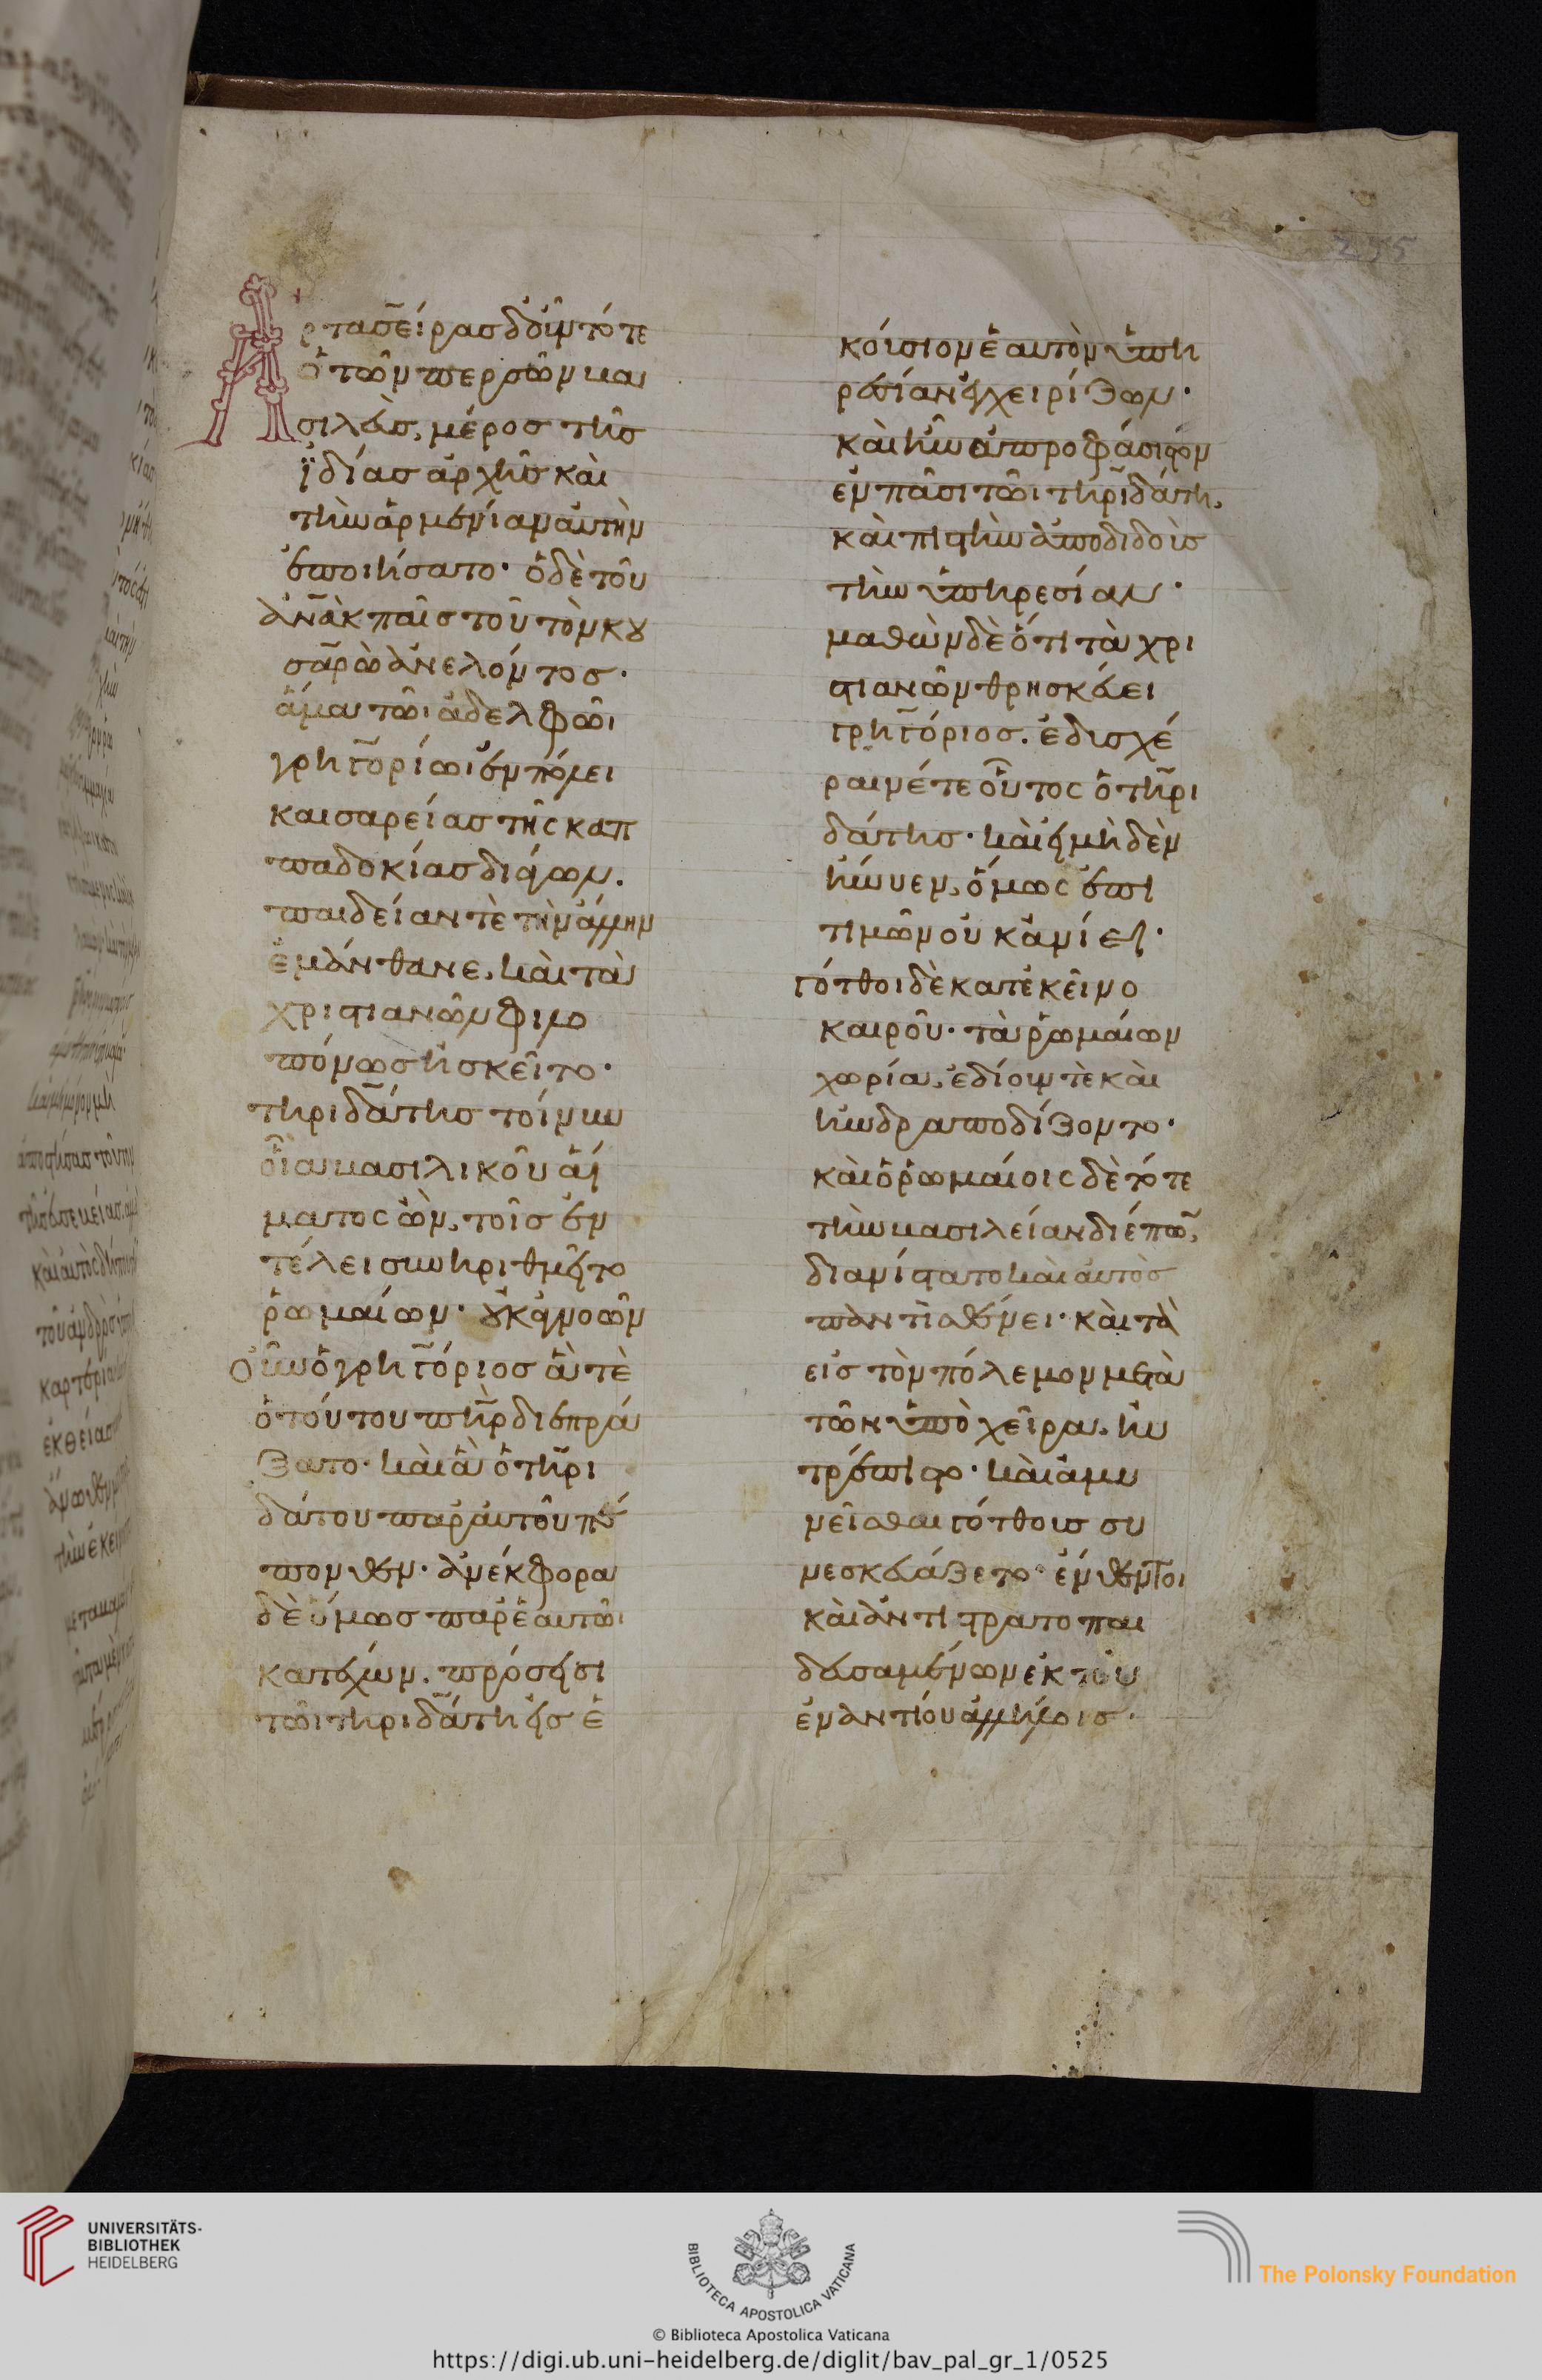 255
Ἀρτασείρας δ' οὖν τότε
ὁ τῶν περσῶν βα
σιλεὺς, μέρος τῆς
ἰδίας ἀρχῆς καὶ
τὴν ἀρμενίαν αὐτὴν
ἐποιήσατο· ὁ δὲ τοῦ
ἀνὰκ παῖς τοῦ τὸν κου
σαρὼ ἀνελόντος·
ἅμα τῶι ἀδελφῶι
γρηγορίωι ἐν πόλει
καισαρείας τῆς καπ
παδοκίας διάγων.
παιδείαν τὲ τὴν ἄλλην
ἐμάνθανε, καὶ τὰ
χριστιανῶν φιλο
πόνως ἠσκεῖτο·
τηριδάτης τοίνυν
οἷα βασιλικοῦ αἵ
ματος ὢν, τοῖς ἐν
τέλει συνηριθμεῖτο
ῥωμαίων· οὐκ ἀγνοῶν
οὖν ὁ γρηγόριος ἅ τε
ὁ τούτου πατὴρ διεπρά
ξατο· καὶ ἃ ὁ τηρι
δάτου παρ' αὐτοῦ πέ
πονθεν· ἀνέκφορα
δὲ ὅμως παρ' ἑαυτῶι
κατέχων. πρόσεισι
τῶι τηριδάτη εἰς ἑ
κούσιον ἑαυτὸν ὑπη
ρεσίαν ἐγχειρίζων·
καὶ ἦν ἀπροφάσιστον
ἐν πᾶσι τῶι τηριδάτη,
καὶ πιστὴν ἀποδιδοὺς
τὴν ὑπηρεσίαν·
μαθὼν δὲ ὅτι τὰ χρι
στιανῶν θρησκεύει
γρηγόριος. ἐδυσχέ
ραινέ τε οὗτος ὁ τηρι
δάτης· καὶ εἰ μηδὲν
ἤνυεν, ὅμως ἐπι
τιμῶν οὐκ ἀνίει·
γότθοι δὲ κατ' ἐκεῖνο
καιροῦ· τὰ ῥωμαίων
χωρία, ἐδίουν τὲ καὶ
ἠνδραποδίζοντο·
καὶ ὁ ῥωμαίοις δὲ τότε
τὴν βασιλείαν διέπων,
διανίστατο καὶ αὐτὸς
παντὶ σθένει· καὶ τὰ
εἰς τὸν πόλεμον μετὰ
τῶν ὑπὸ χεῖρα, ηυ
τρέπιστο· καὶ ἀμυ
νεῖσθαι γότθους συ
νεσκευάζετο· ἐν θέντοι
καὶ ἀντιστρατοπαι
δευσαμένων ἐκ τοῦ
ἐναντίου ἀλλήλοις·
UNIVERSITÄTS-
BIBLIOTHEK
HEIDELBERG
BIBLIOTECA APOSTOLICA VATICANA
The Polonsky Foundation
© Biblioteca Apostolica Vaticana
https://digi.ub.uni-heidelberg.de/diglit/bav_pal_gr_1/0525